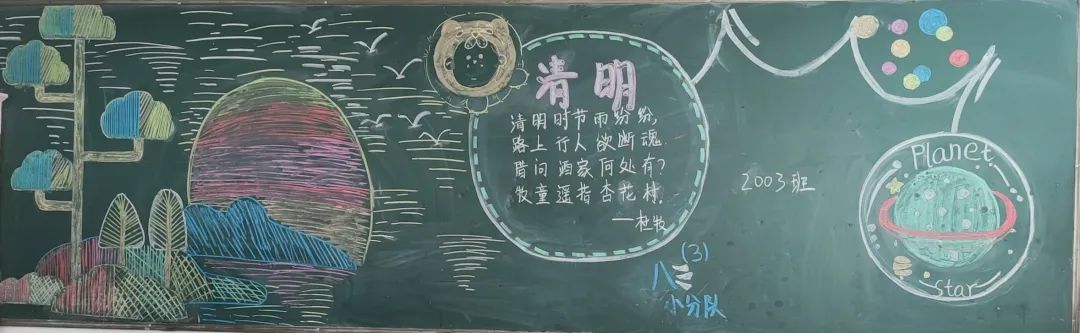 清明
清明时节雨纷纷，
路上行人欲断魂.
借问酒家何处有？
牧童遥指杏花村.
——杜牧
2003班
(3)
小分队
Planet
Star